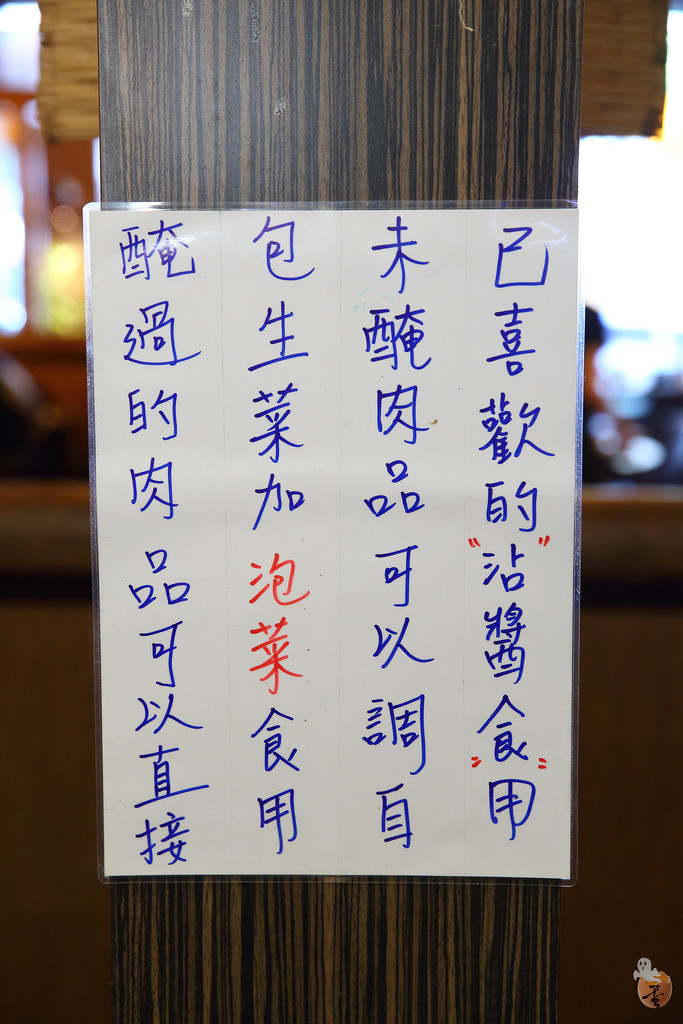 醃過的肉品可以直接
包生菜加泡菜食用
未醃肉品可以調自
已喜歡的"沾醬食"用